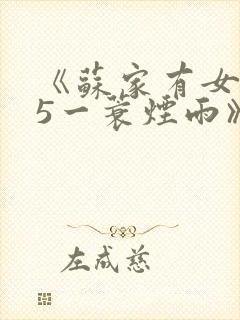 《蘇家有女
5一蓑煙雨》
左成慈